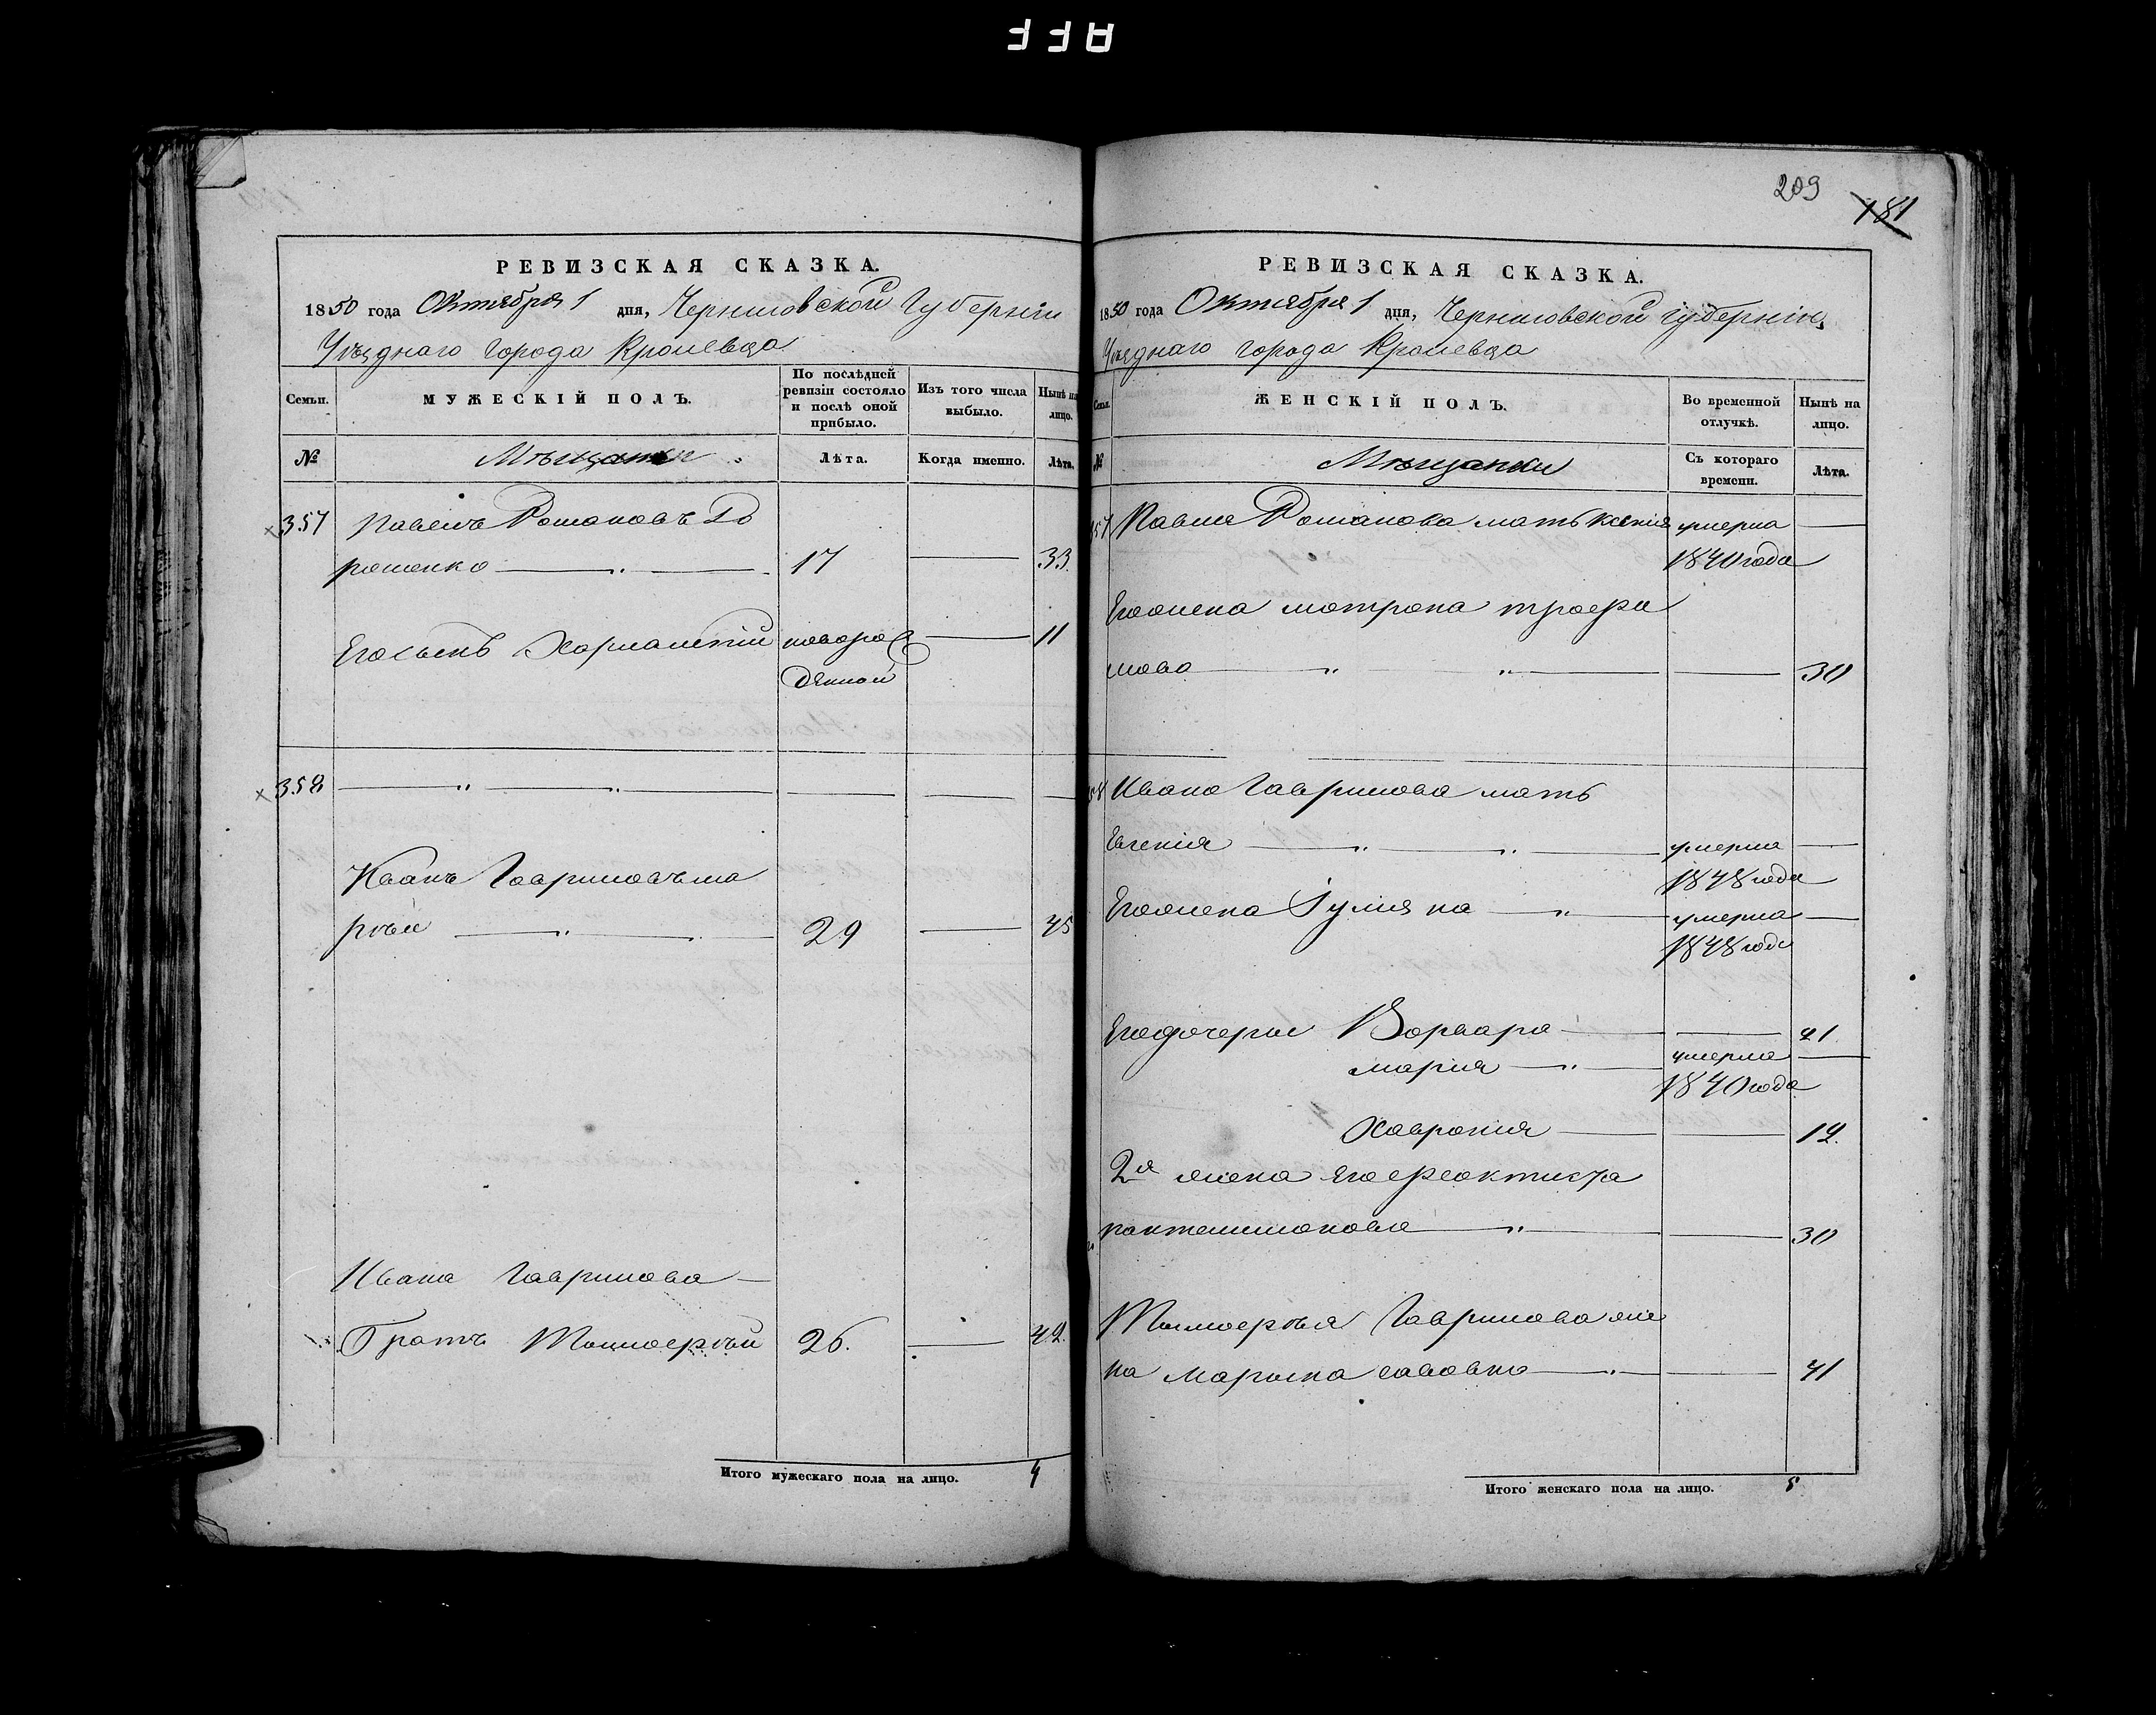 AFF
РЕВИЗСКАЯ СКАЗКА.
1850 года Октября 1 дня, Черниговской Губерніи
Уѣзднаго города Кролевца
Семьи.
МУЖЕСКІЙ ПОЛЪ.
По послѣдней ревизіи состояло и послѣ оной прибыло.
Изъ того числа выбыло.
Нынѣ на лицо.
№
Мѣщане
Лѣта.
Когда именно.
Лѣта.
357 Павелъ Романовъ До
рошенко 17 33
Его сынъ Харлампій новорож 11
денной
358
Иванъ Гавриловъ
29 45
Ивана Гаврилова
Братъ Тимоерѣй 26. 42.
Итого мужескаго пола на лицо. 4
209
181
РЕВИЗСКАЯ СКАЗКА.
1850 года Октября 1 дня, Черниговской губерніи
Уѣзднаго города Кролевца
Семьи.
ЖЕНСКІЙ ПОЛЪ.
Во временной отлучкѣ.
Нынѣ на лицо.
№
Мѣщанки
Съ котораго времени.
Лѣта.
357 Павла Романова мать Ксенія умерла
1840 года
Его жена матрона трофи
мова 30
58 Ивана Гаврилова мать
Евгенія умерла
1848 года
Его жена Іулияна умерла
1848 года
Его дочери Варвара 21
мария умерла
1840 года
Хаврония 12.
2я жена его феоктиста
пантелимонова 30
Гаврилова же
на Марина савовна 41
Итого женскаго пола на лицо. 5